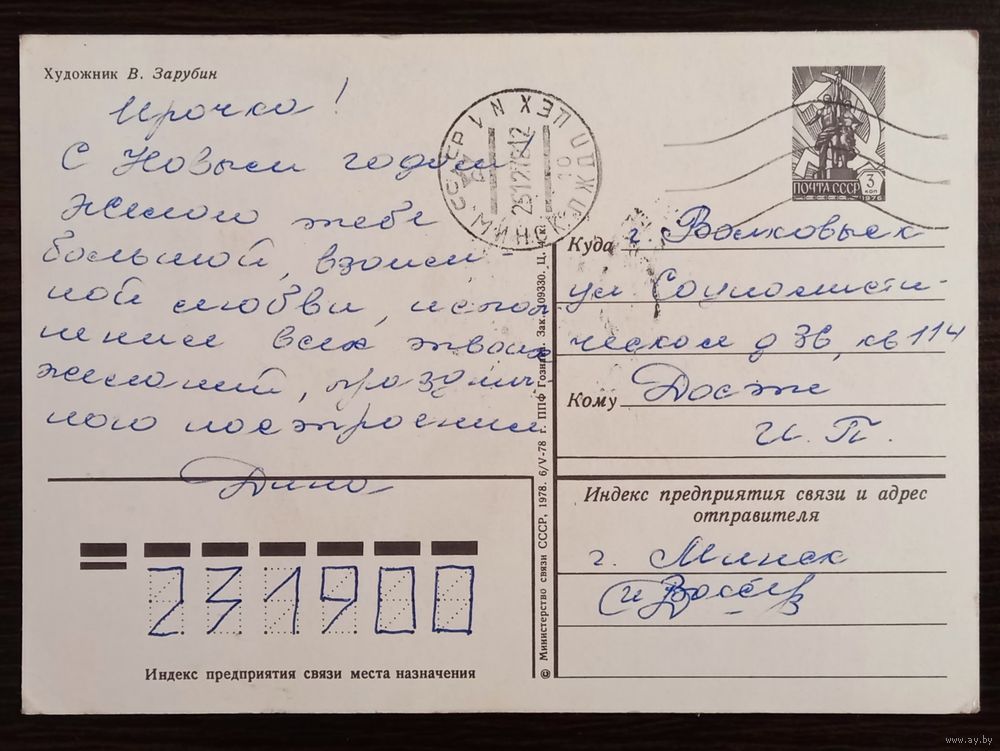 Художник В. Зарубин
Ирочка!
С Новым годом!
Желаю тебе
большой, взаим
ной любви, испол
нения всех твоих
желаний, празднич-
ного настроения
Дина
ПОЧТА СССР 3 коп
1976
МИНСК
251278 12
Куда г. Волковыск
ул Социалисти-
ческая д 36, кв 114
Кому
И. П.
Индекс предприятия связи и адрес
отправителя
г. Минск
231900
Индекс предприятия связи места назначения
© Министерство связи СССР, 1978. 6/V-78 г. ППФ Гознака. Зак. 109330. Ц. 4 к.
www.ay.by